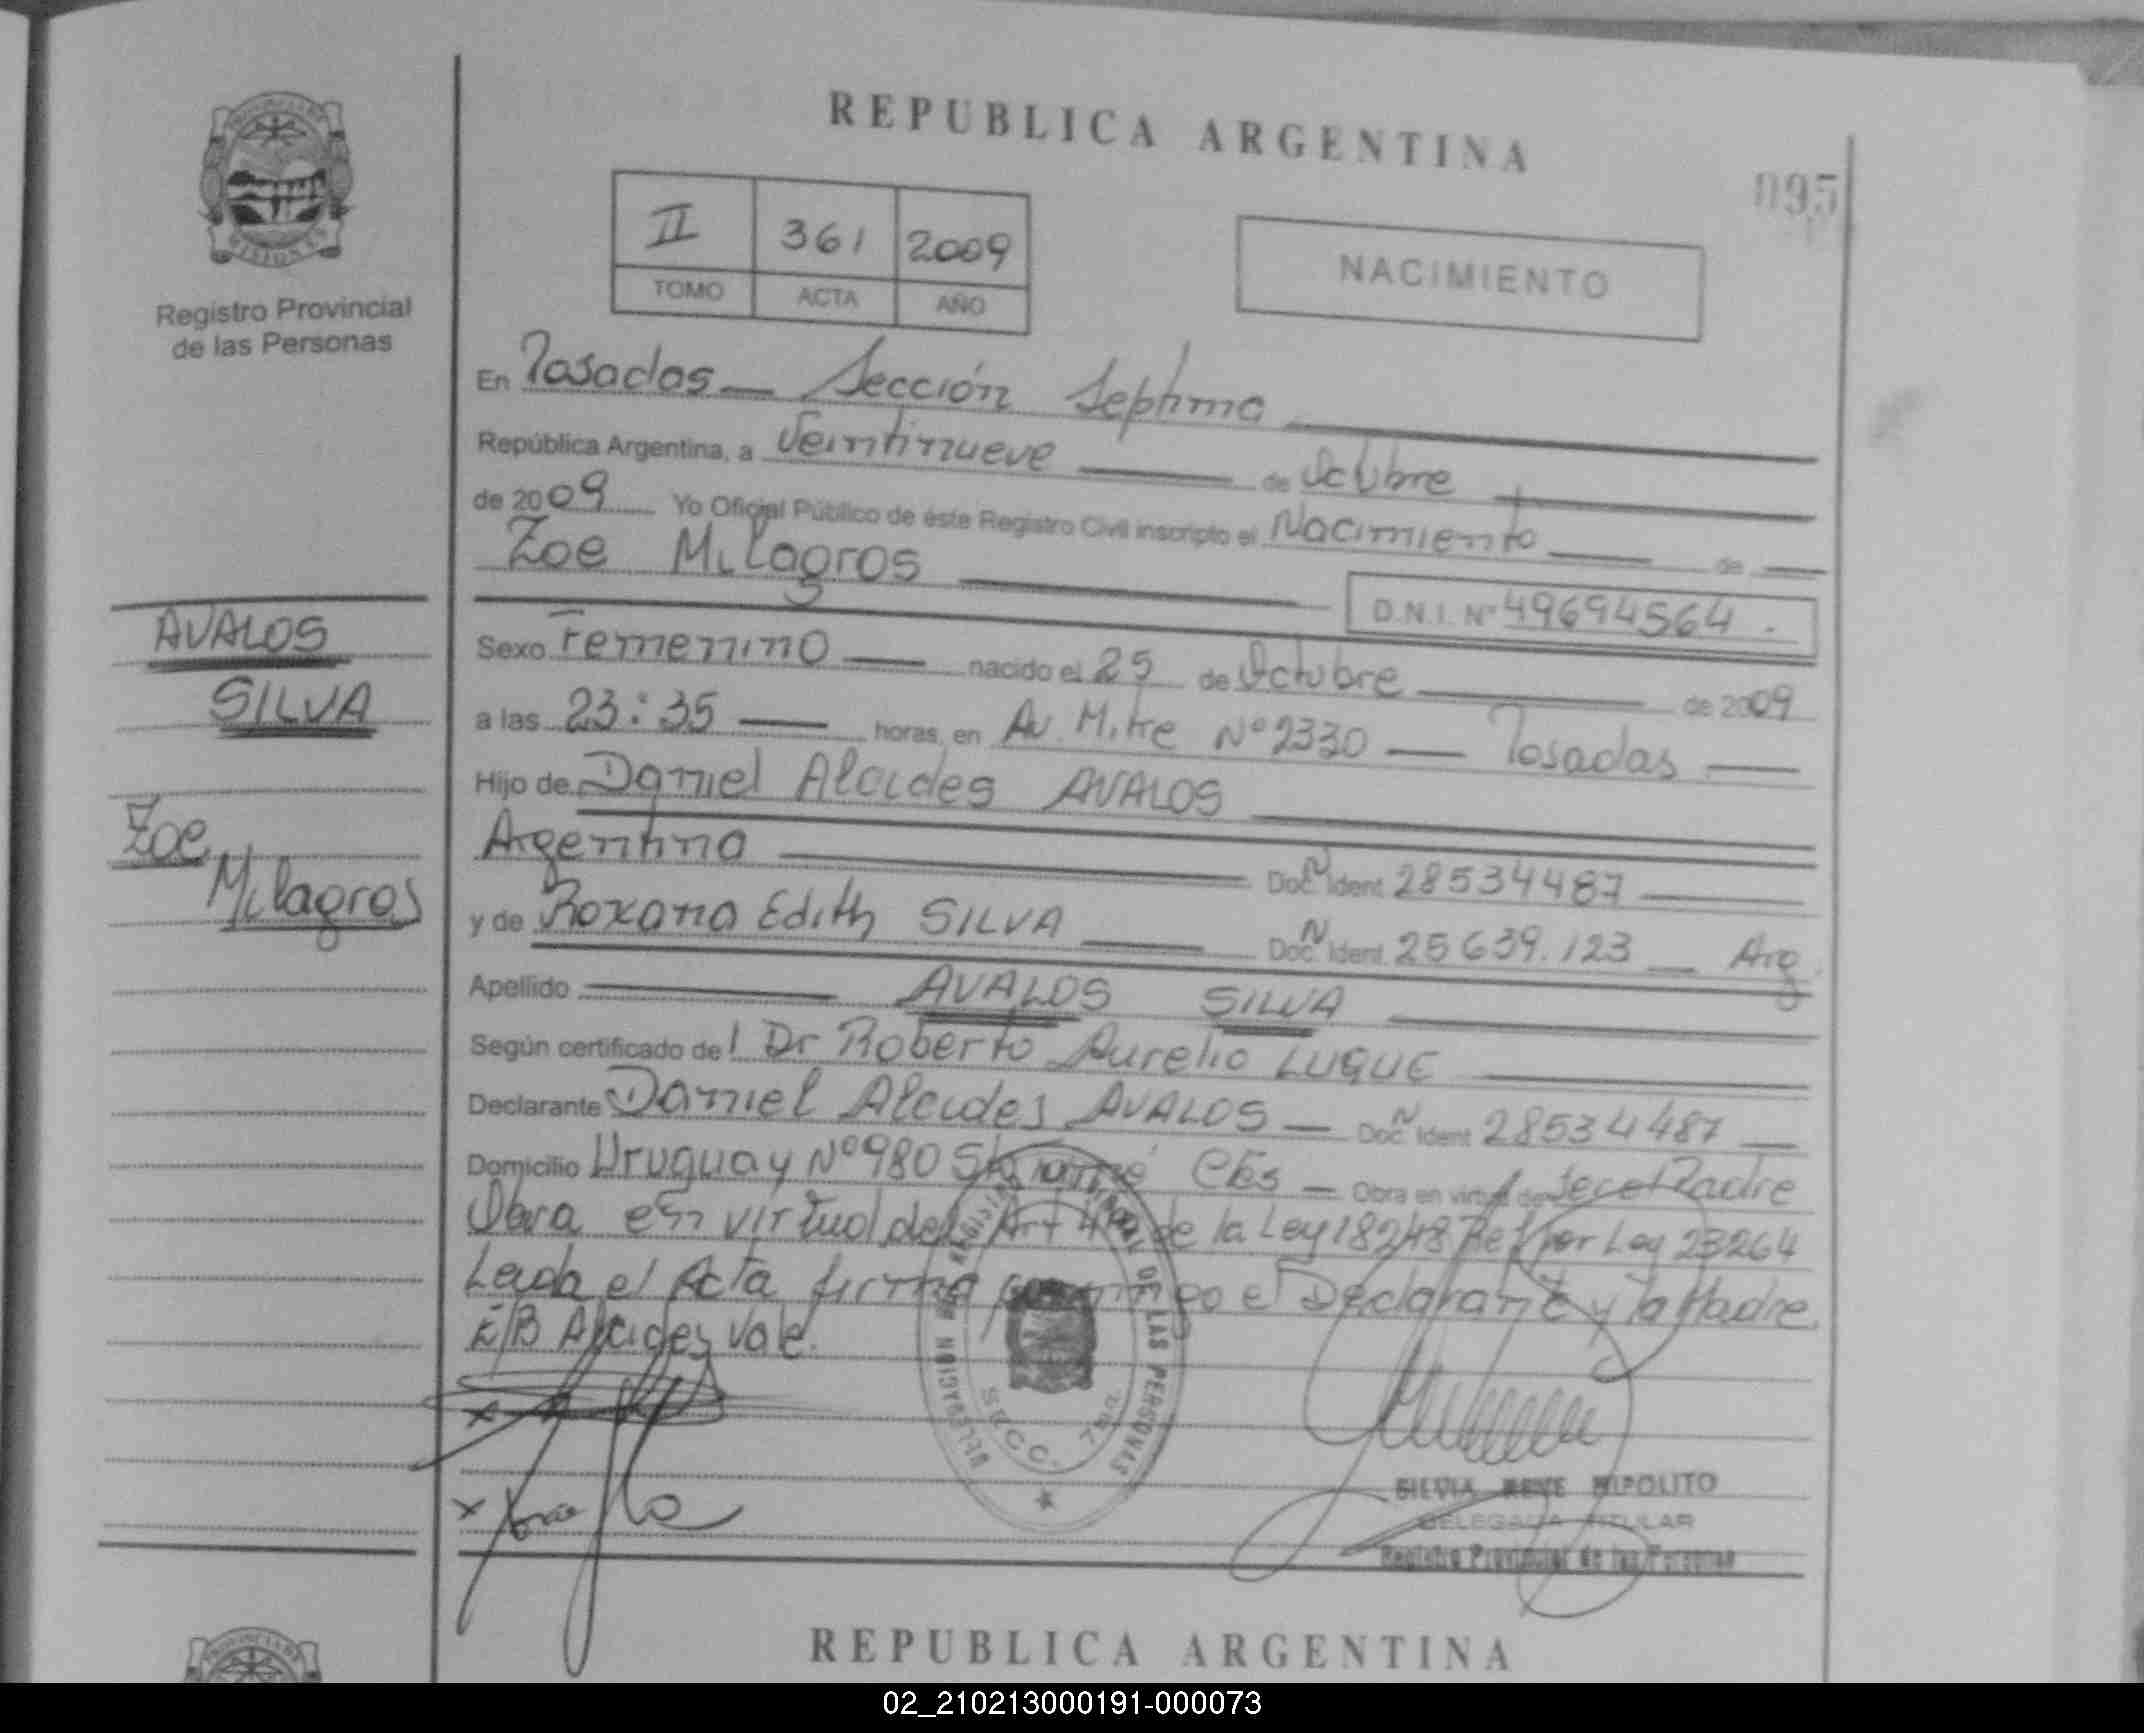 REPUBLICA ARGENTINA
095
II 361 2009
TOMO ACTA AÑO
NACIMIENTO
Registro Provincial
de las Personas
En Posadas Sección Septima
República Argentina, a Veintinueve de Octubre
de 2009 Yo Oficial Público de éste Registro Civil inscripto el Nacimiento de
Zoe Milagros
D.N.I. Nº 49694564.
AVALOS
SILVA
Zoe
Milagros
Sexo Femenino nacido el 25 de Octubre de 2009
a las 23:35 horas, en Av. Mitre Nº 2330 Posadas
Hijo de Daniel Alcides AVALOS
Argentino Doc. N Ident. 28534487
y de Roxana Edith SILVA Doc. N Ident. 25639.123 Arg.
Apellido AVALOS SILVA
Según certificado del Dr Roberto Aurelio LUQUE
Declarante Daniel Alcides AVALOS Doc. N Ident 28534487
Domicilio Uruguay Nº 980 Obra en virtud de Padre
Obra en virtud del Art de la Ley 18248 Ref por Ley 23264
Leida el Acta firma el Declarante y la Madre.
E/B Alcides Vale.
DELEGACION REGISTRO PROVINCIAL DE LAS PERSONAS
SECC. 7ma.
SILVIA RENE HIPOLITO
DELEGADA TITULAR
Registro Provincial de las Personas
REPUBLICA ARGENTINA
02_210213000191-000073